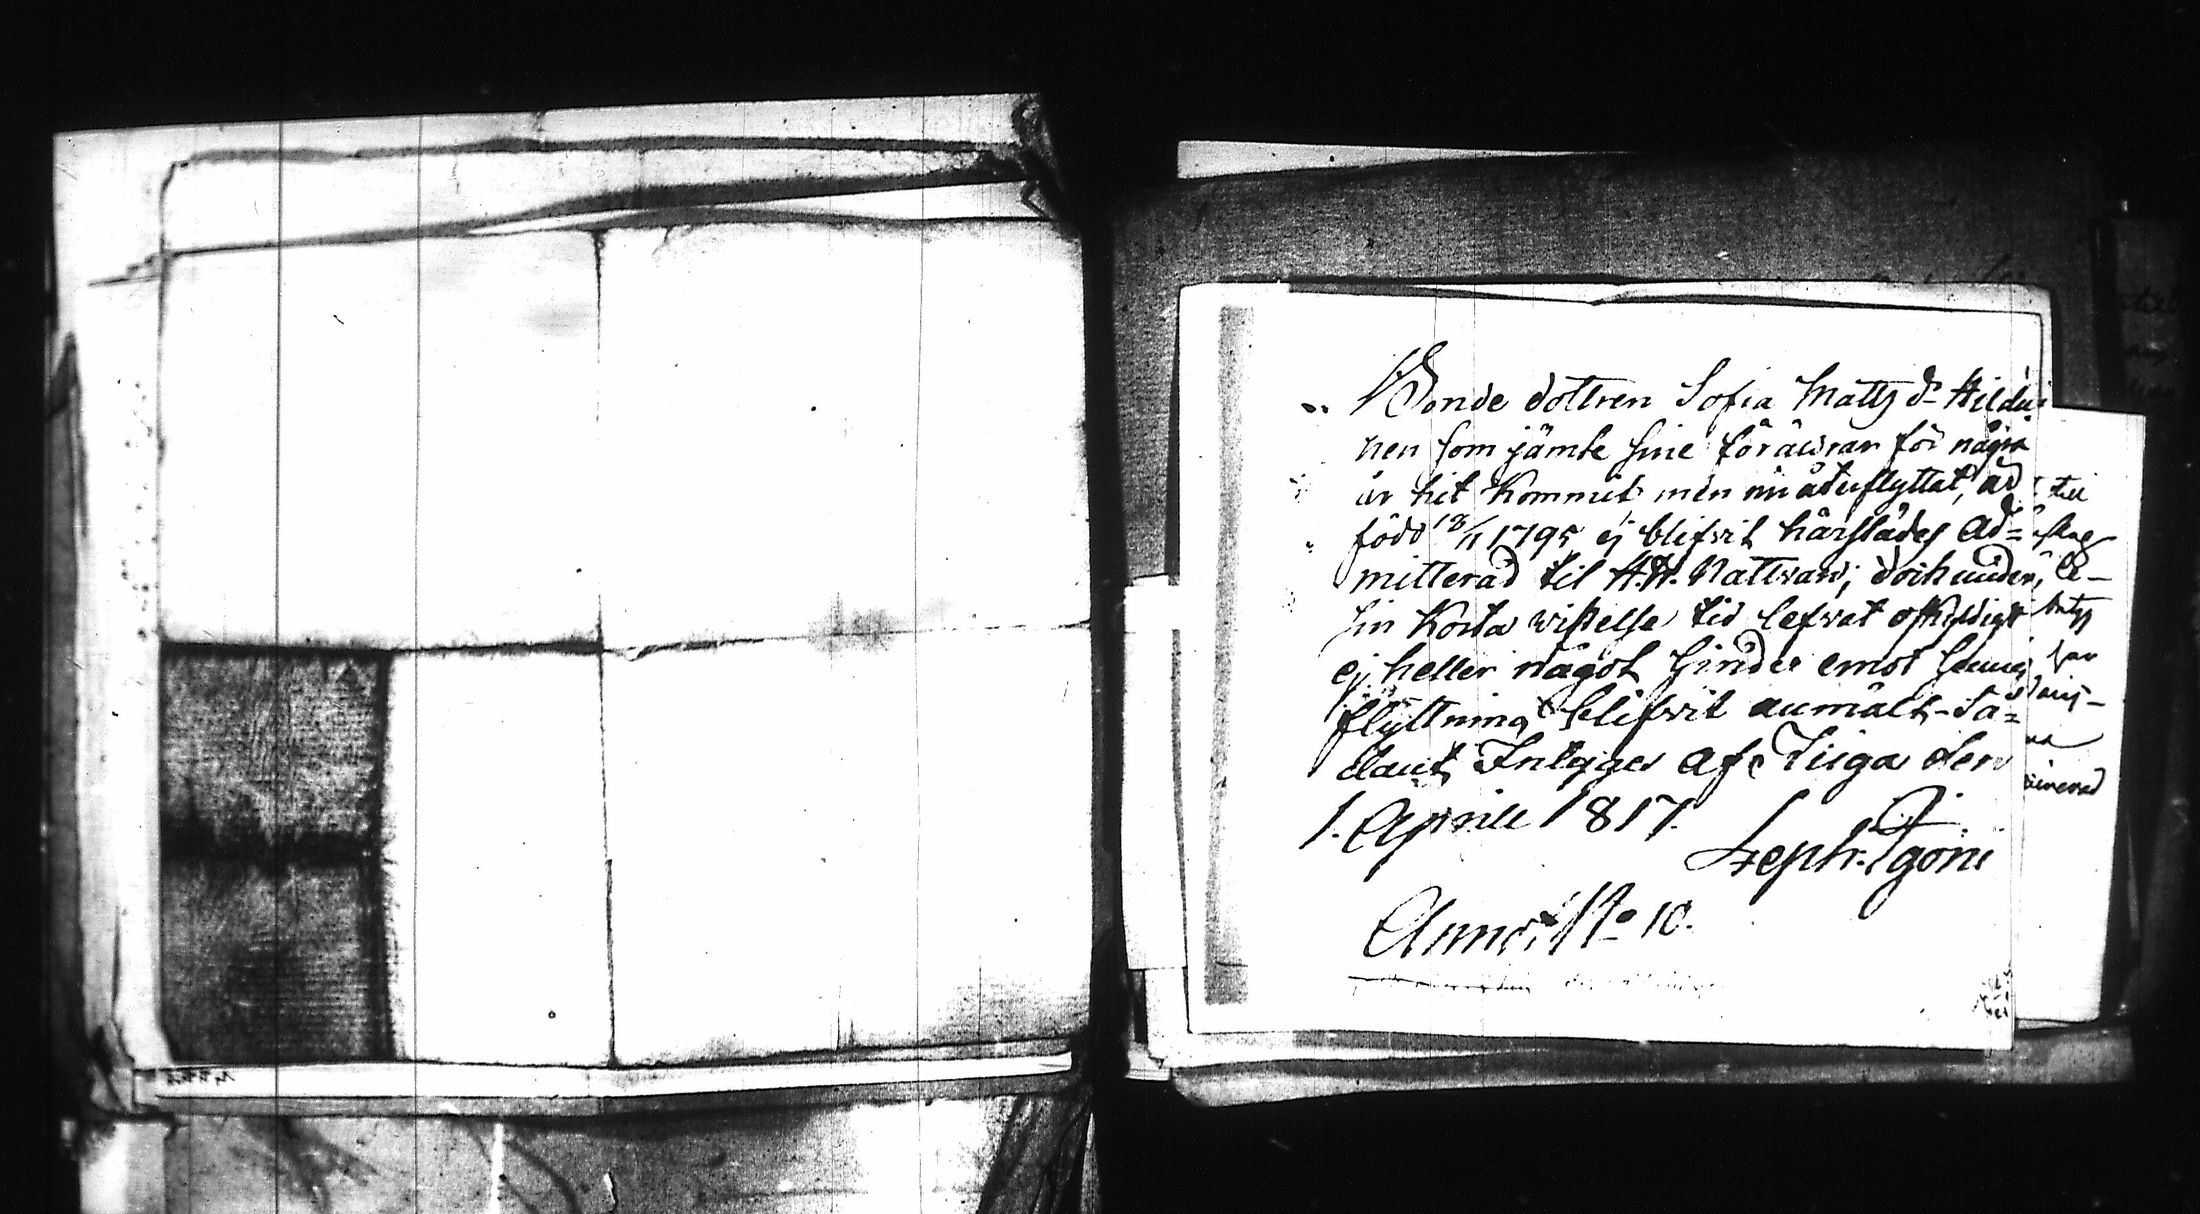 Bonde dottren Sofia Matts dr Hildu
nen som jämte sine föräldrar för några
år hit kommit men nu återflyttat, är
född 18/11 1795 ej blifvit härstädes ad=
mitterad til H.H. Nattvard, doch under
sin korta vistelse tid lefvat oskyldigt
ej heller något hinder emot hennes
flyttning blifvit anmält - Så=
dant Intygas af Tiiga den
1. Aprill 1817.
Zeph. Tgoni
Anno: No 10.
till